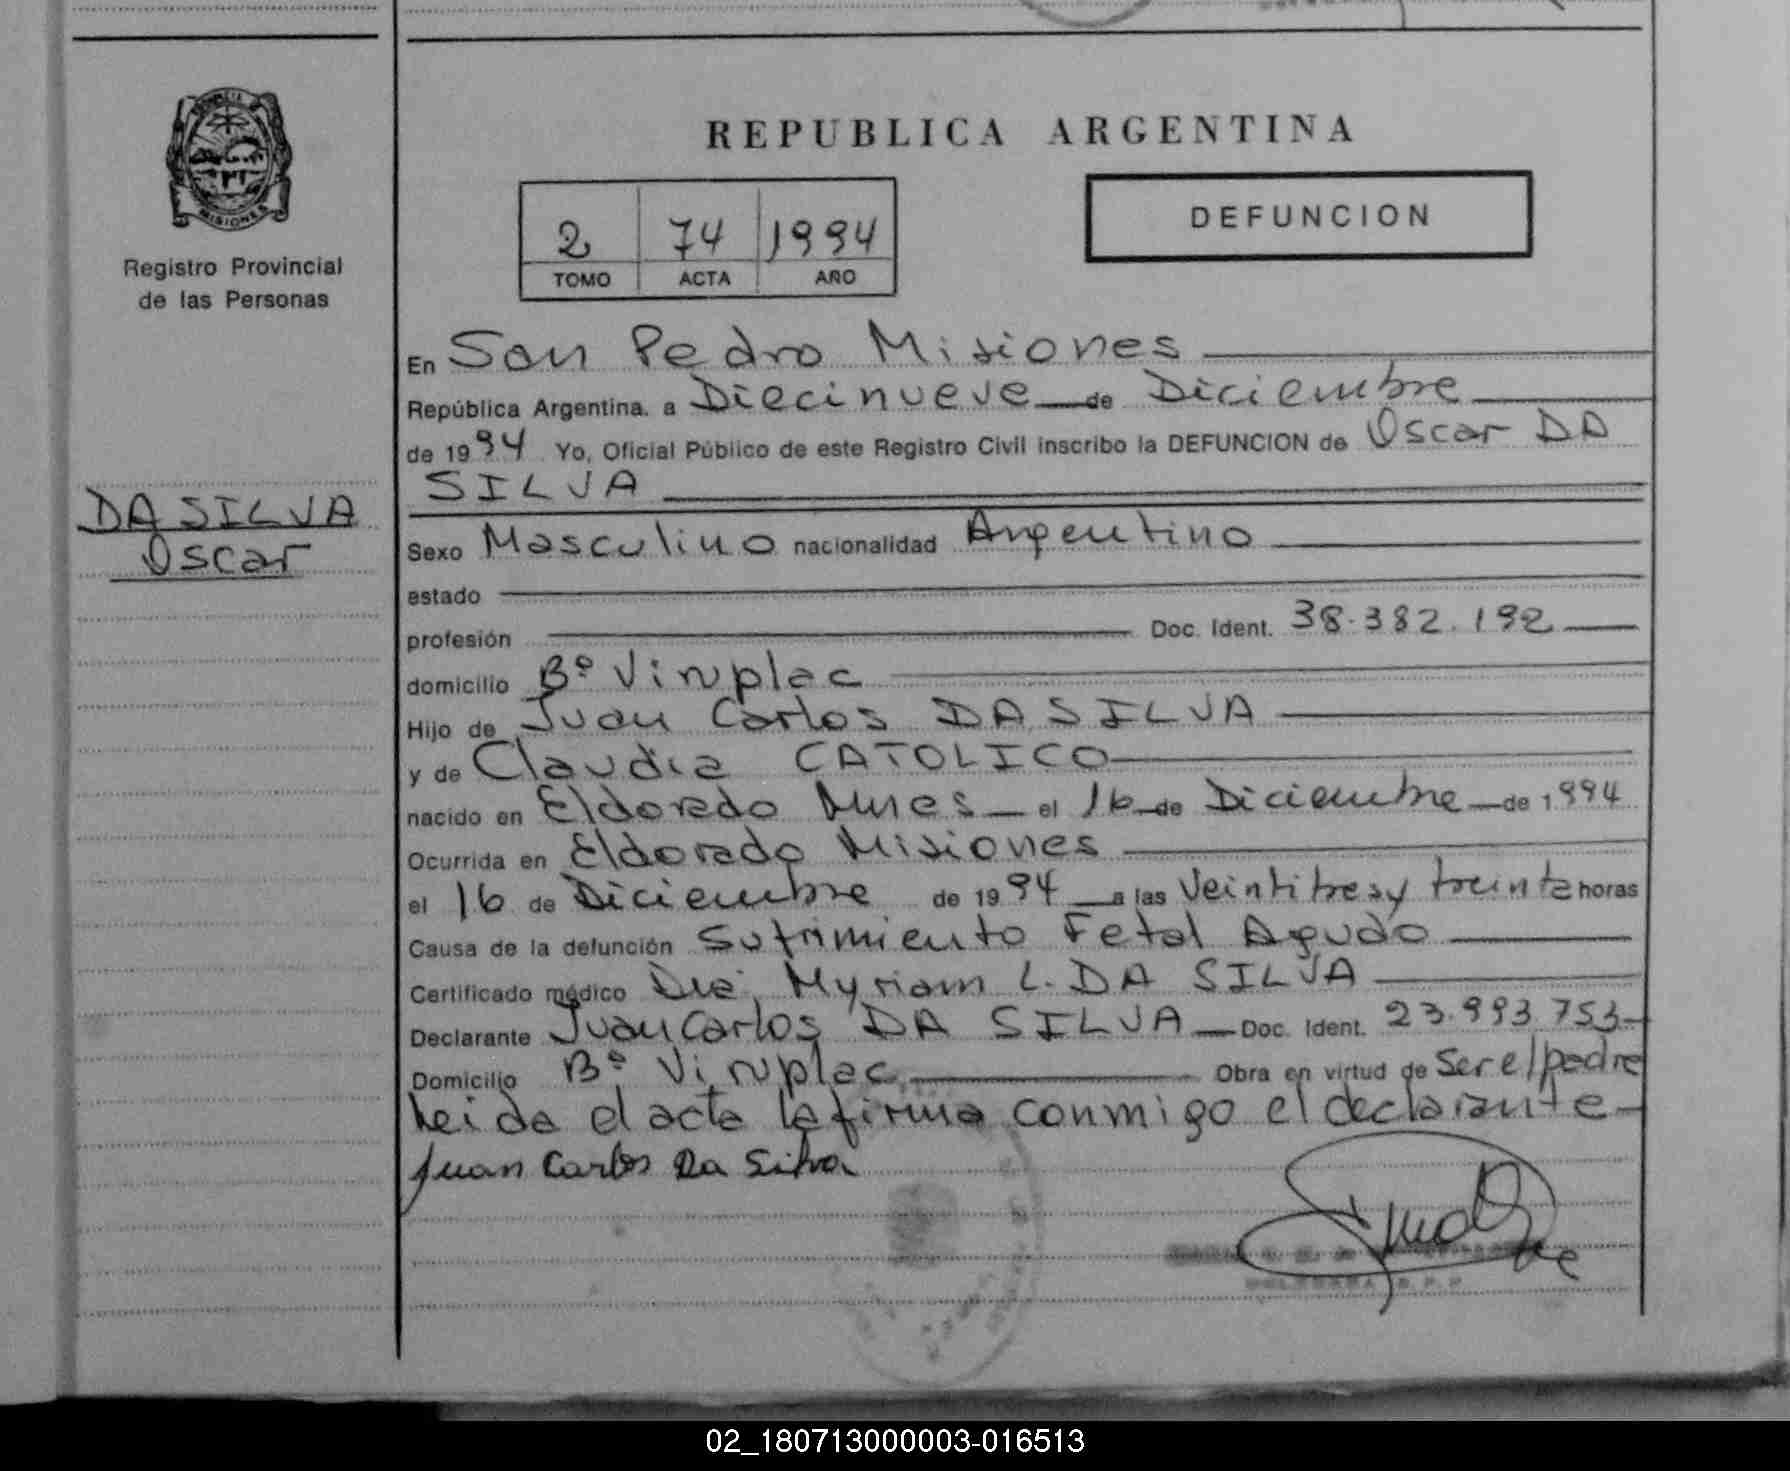 PROVINCIA DE
MISIONES
Registro Provincial
de las Personas
DA SILVA
Oscar
REPUBLICA ARGENTINA
2 74 1994
TOMO ACTA AÑO
DEFUNCION
En San Pedro Misiones
República Argentina, a Diecinueve de Diciembre
de 1994 Yo, Oficial Público de este Registro Civil inscribo la DEFUNCION de Oscar DA
SILVA
Sexo Masculino nacionalidad Argentino
estado
profesión Doc. Ident. 38.382.192
domicilio Bº Viruplac
Hijo de Juan Carlos DA SILVA
y de Claudia CATOLICO
nacido en Eldorado Mnes el 16 de Diciembre de 1994
Ocurrida en Eldorado Misiones
el 16 de Diciembre de 1994 a las Veintitres y treinta horas
Causa de la defunción Sufrimiento Fetal Agudo
Certificado médico Dra. Myriam L. DA SILVA
Declarante Juan Carlos DA SILVA Doc. Ident. 23.993.753
Domicilio Bº Viruplac Obra en virtud de Ser el padre
Leida el acta la firma conmigo el declarante
Juan Carlos Da Silva
02_180713000003-016513